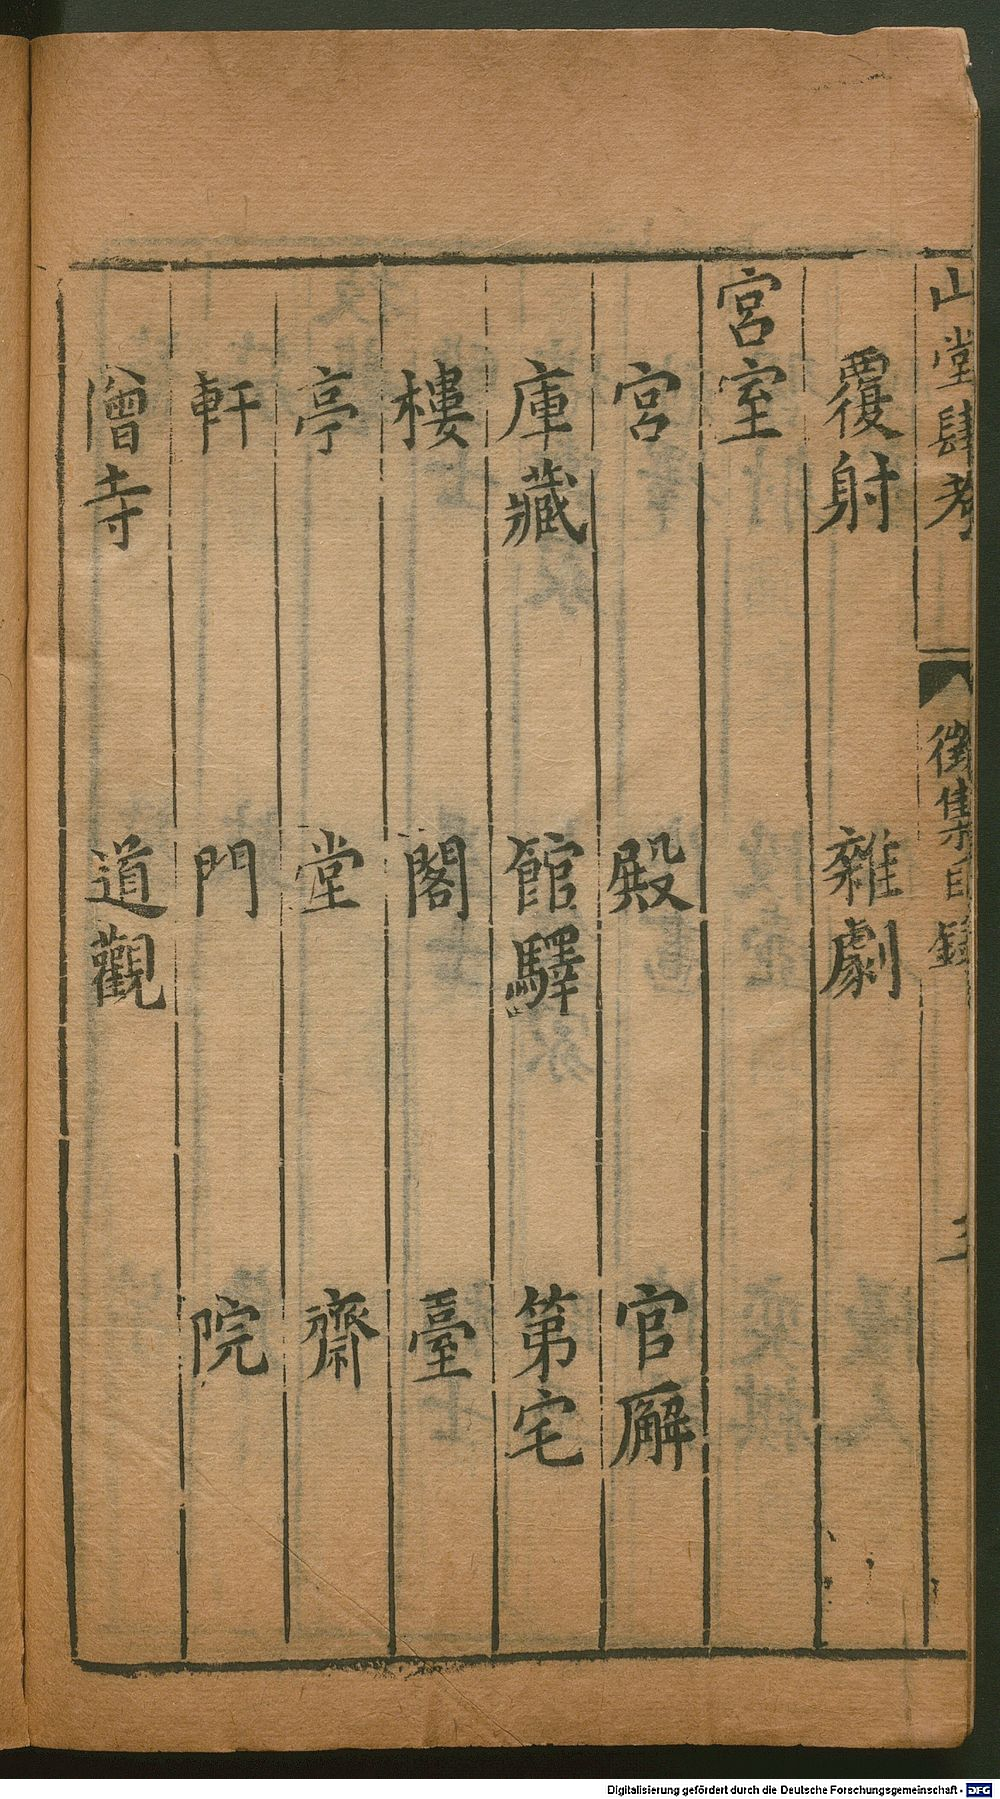 山堂肆考
徵集目錄
覆射 雜劇
宮室
宮 殿 官廨
庫藏 館驛 第宅
樓 閣 臺
亭 堂 齋
軒 門 院
僧寺 道觀
Digitalisierung gefördert durch die Deutsche Forschungsgemeinschaft - DFG